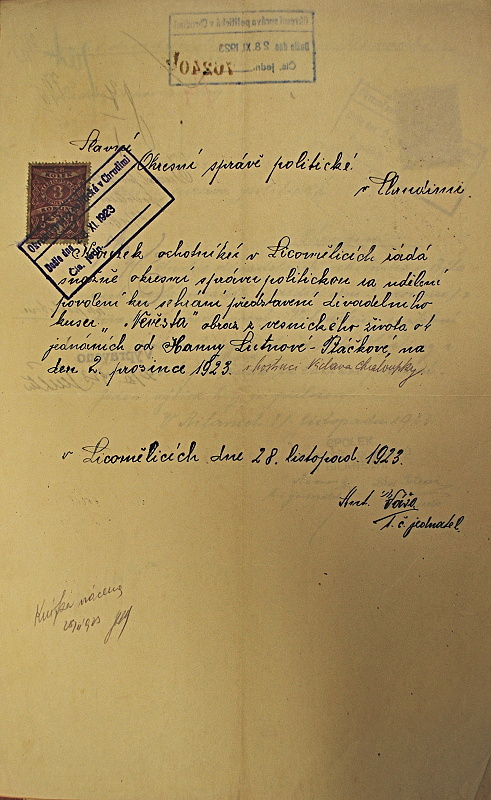 Okresní správa politická v Chrudimi
Došlo dne 28. XI. 1923
Čís. jedn. 70240
Slavné
Okresní správě politické
v Chrudimi.
KOLEK
3
Okresní správa politická v Chrudimi
Došlo dne XI 1923
Čís. jedn.
Spolek ochotníků v Licoměřicích žádá
snažně okresní správu politickou za udělení
povolení ku sehrání představení divadelního
kusu „Nevěsta" obraz z vesnického života o
jednáních od Hanny Lutnové-Ptáčkové, na
den 2. prosince 1923. v hostinci Václava Chaloupky.
v Licoměřicích dne 28. listopad. 1923.
Ant. Váša
t. č. jednatel.
Knížka vrácena